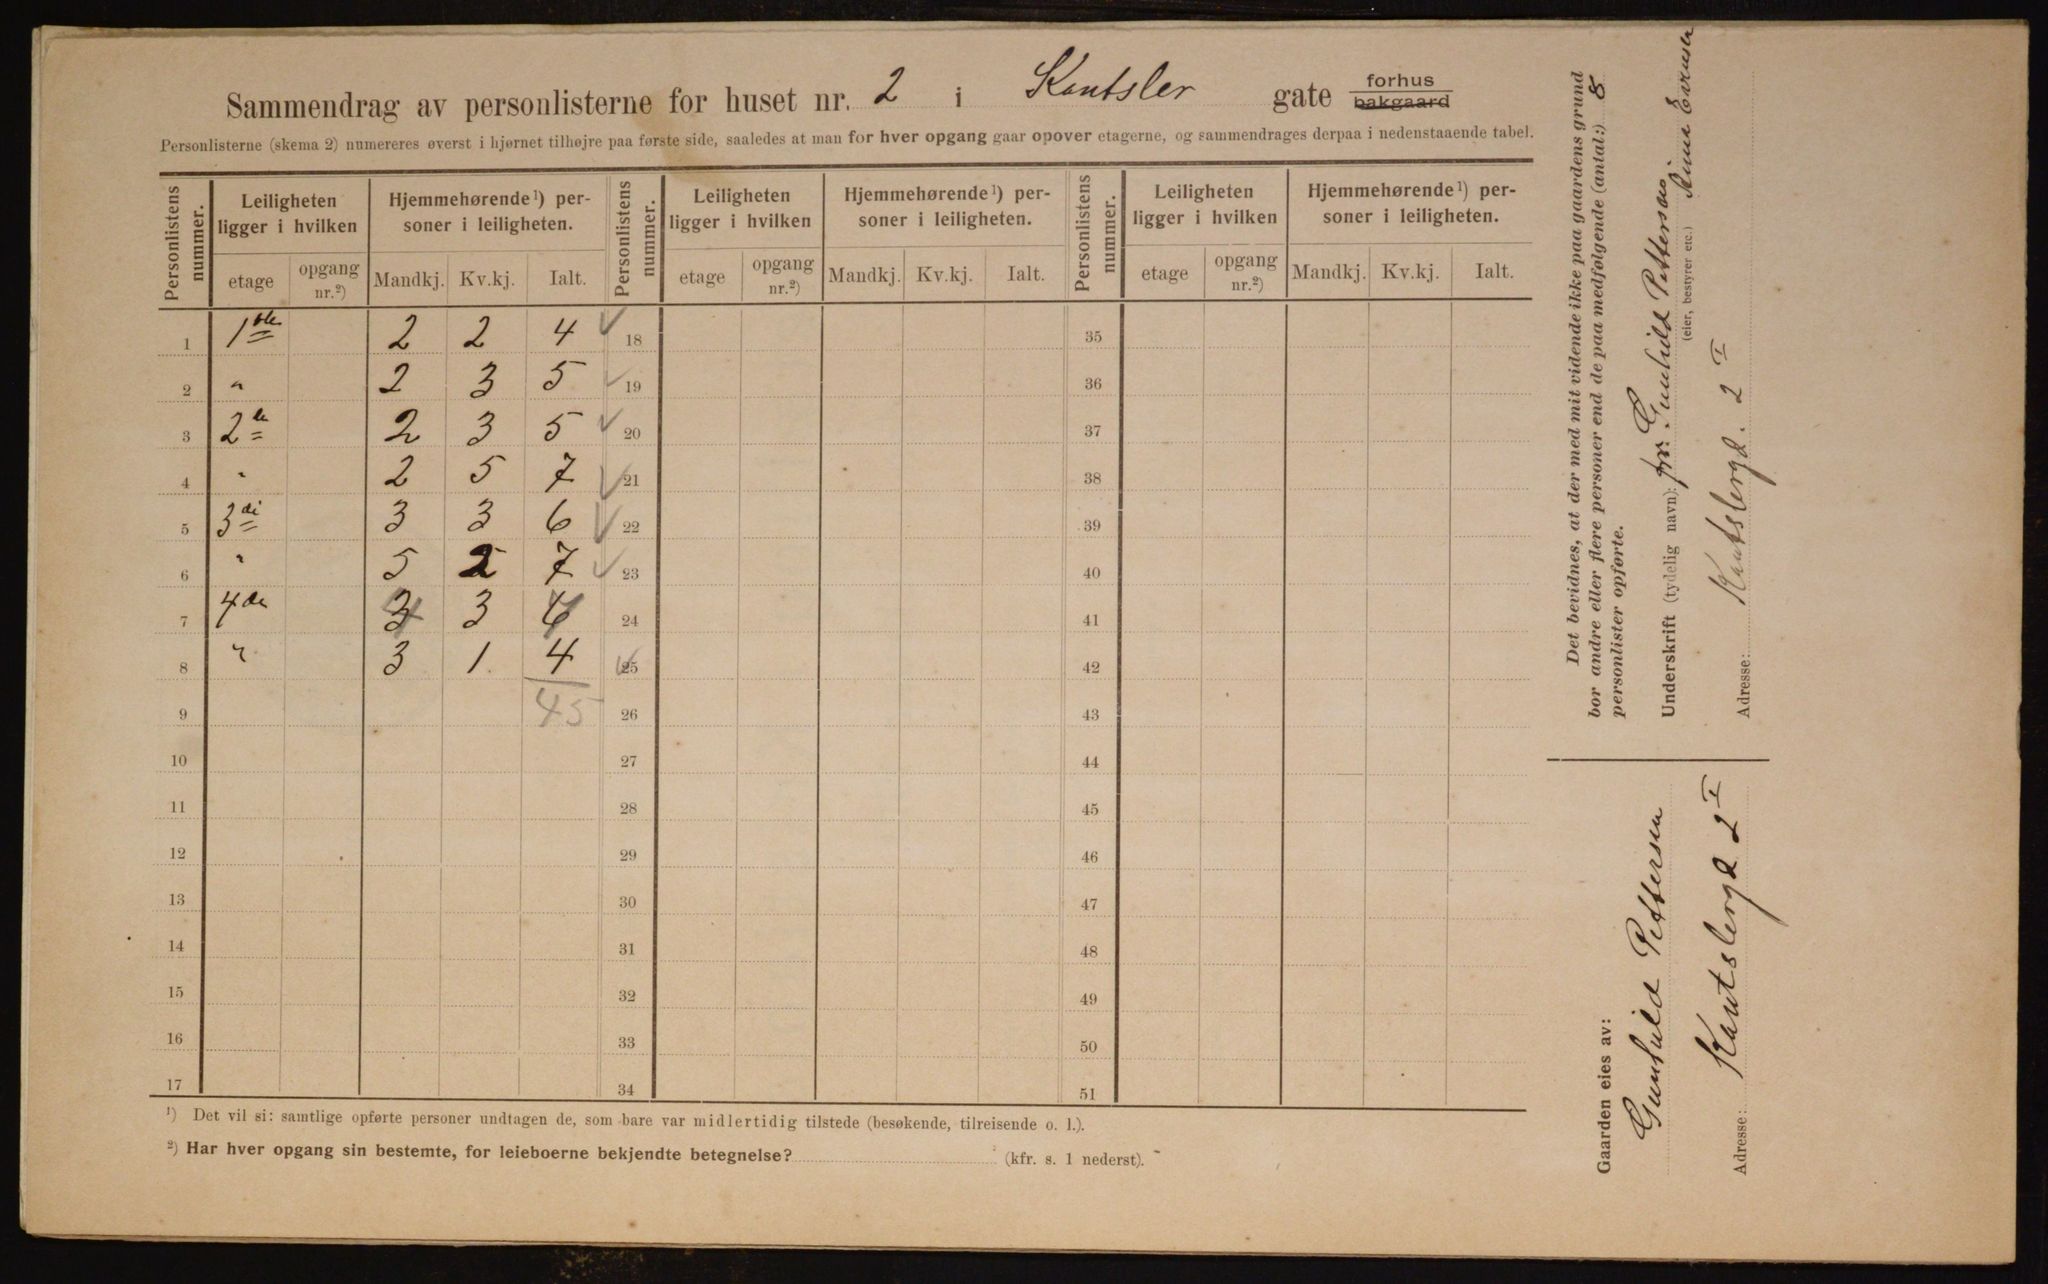 Sammendrag av personlisterne for huset nr. 2 i Kantsler gate forhus bakgaard
Personlisterne (skema 2) numereres øverst i hjørnet tilhøjre paa første side, saaledes at man for hver opgang gaar opover etagerne, og sammendrages derpaa i nedenstaaende tabel.
Personlistens nummer. Leiligheten ligger i hvilken Hjemmehørende ¹) personer i leiligheten. Personlistens nummer. Leiligheten ligger i hvilken Hjemmehørende ¹) personer i leiligheten. Personlistens nummer. Leiligheten ligger i hvilken Hjemmehørende ¹) personer i leiligheten.
etage opgang nr.²) Mandkj. Kv.kj. Ialt. etage opgang nr.²) Mandkj. Kv.kj. Ialt. etage opgang nr.²) Mandkj. Kv.kj. Ialt.
1 1ste 2 2 4 ✓ 18 35
2 " 2 3 5 ✓ 19 36
3 2de 2 3 5 ✓ 20 37
4 " 2 5 7 ✓ 21 38
5 3di 3 3 6 ✓ 22 39
6 " 5 2 7 ✓ 23 40
7 4de 3 24 41
8 " 3 1. 4 ✓ 25 42
9 45 26 43
10 27 44
11 28 45
12 29 46
13 30 47
14 31 48
15 32 49
16 33 50
17 34 51
¹) Det vil si: samtlige opførte personer undtagen de, som bare var midlertidig tilstede (besøkende, tilreisende o. l.).
²) Har hver opgang sin bestemte, for leieboerne bekjendte betegnelse? (kfr. s. 1 nederst).
Det bevidnes, at der med mit vidende ikke paa gaardens grund
bor andre eller flere personer end de paa medfølgende (antal:) 8
personlister opførte.
Underskrift (tydelig navn): for Gunhild Pettersen
(eier, bestyrer etc.)
Adresse: Kantslergd. 2 I
Gaarden eies av:
Gunhild Pettersen
Adresse: Kantslergd 2 I